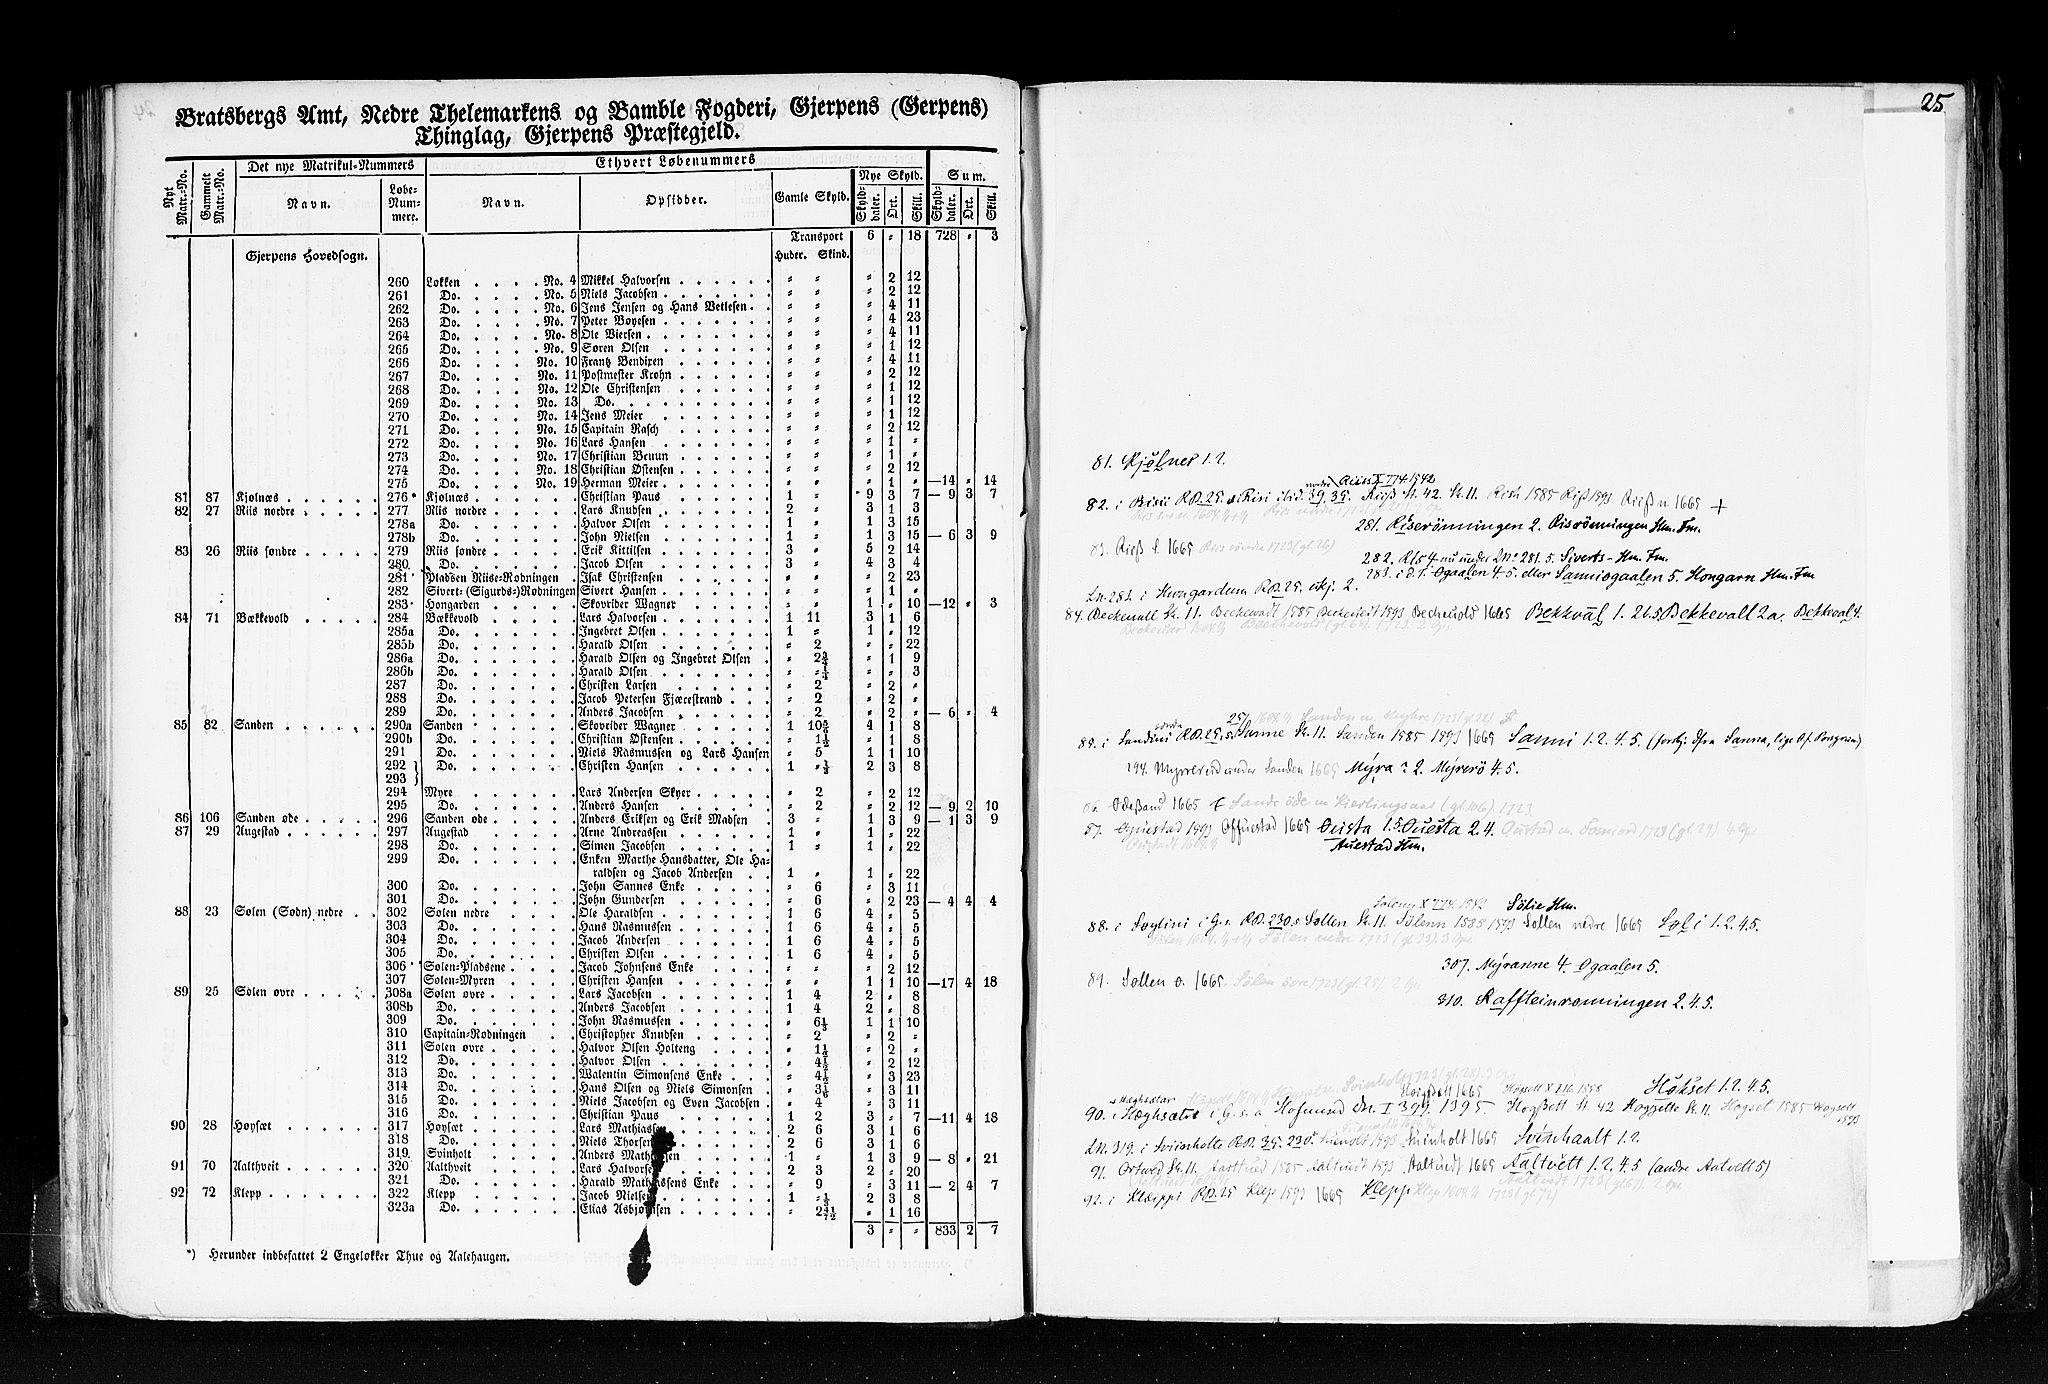 Bratsbergs Amt, Nedre Thelemarkens og Bamble Fogderi, Gjerpens (Gerpens)
Thinglag, Gjerpens Præstegjeld.
Nyt Matr.-No. Gammelt Matr.-No. Det nye Matrikul-Nummers Ethvert Løbenummers
Navn. Løbe-Nummere. Navn. Opsidder. Gamle Skyld. Nye Skyld. Sum.
Skylddaler. Ort. Skill. Skylddaler. Ort. Skill.
Transport 6 „ 18 728 „ 3
Gjerpens Hovedsogn. Huder. Skind.
260 Løkken . . . . No. 4 Mikkel Halvorsen „ „ „ 2 12
261 Do. . . . . No. 5 Niels Jacobsen „ „ „ 2 12
262 Do. . . . . No. 6 Jens Jensen og Hans Vetlesen „ „ „ 4 11
263 Do. . . . . No. 7 Peter Boyesen „ „ „ 4 23
264 Do. . . . . No. 8 Ole Viersen „ „ „ 4 11
265 Do. . . . . No. 9 Søren Olsen „ „ „ 1 12
266 Do. . . . . No. 10 Frantz Bendixen „ „ „ 4 11
267 Do. . . . . No. 11 Postmester Krohn „ „ „ 2 12
268 Do. . . . . No. 12 Ole Christensen „ „ „ 1 12
269 Do. . . . . No. 13 Do. „ „ „ 1 12
270 Do. . . . . No. 14 Jens Meier „ „ „ 1 12
271 Do. . . . . No. 15 Capitain Rasch „ „ „ 2 12
272 Do. . . . . No. 16 Lars Hansen „ „ „ 1 „
273 Do. . . . . No. 17 Christian Bruun „ „ „ 1 „
274 Do. . . . . No. 18 Christian Østensen „ „ „ 2 12
275 Do. . . . . No. 19 Herman Meier „ „ „ 1 „ —14 „ 14
81 87 Kjølnæs 276* Kjølnæs Christian Paus 1 „ 9 3 7 — 9 3 7
82 27 Riis nordre 277 Riis nordre Lars Knudsen 2 „ 3 1 3
278a Do. Halvor Olsen 1 „ 1 3 15
278b Do. John Nielsen 1 „ 1 3 15 — 6 3 9
83 26 Riis søndre 279 Riis søndre Erik Kittilsen 3 „ 5 2 14
280 Do. Jacob Olsen 3 „ 4 3 4
281 Pladsen Riise-Rødningen Isak Christensen „ „ „ 2 23
282 Sivert-(Sigurds-)Rødningen Sivert Hansen „ „ „ 2 „
283 Hongarden Skovrider Wagner „ „ 1 „ 10 —12 „ 3
84 71 Bækkevold 284 Bækkevold Lars Halvorsen 1 11 3 1 6
285a Do. Ingebret Olsen 1 „ 1 „ 12
285b Do. Harald Olsen „ 2 „ „ 22
286a Do. Harald Olsen og Ingebret Olsen „ 2¾ „ 1 9
286b Do. Harald Olsen „ „¼ „ „ 3
287 Do. Christen Larsen „ 2 „ 2 „
288 Do. Jacob Petersen Fjæcestrand „ 2 „ 2 „
289 Do. Anders Jacobsen „ 2 „ 2 „ — 6 „ 4
85 82 Sanden 290a Sanden Skovrider Wagner 1 10⅚ 4 1 8
290b Do. Christian Østensen „ 1½ „ 1 8
291 Do. Niels Rasmussen og Lars Hansen „ 5 1 1 10
292 } Do. Christen Hansen 1 „⅓ 2 3 8
293 }
294 Myre Lars Andersen Skyer „ 2 „ 2 12
295 Do. Anders Hansen „ 2 „ 2 12 — 9 2 10
86 106 Sanden øde 296 Sanden øde Anders Eriksen og Erik Madsen 3 „ 1 3 9 — 1 3 9
87 29 Augestad 297 Augestad Arne Andreassen 1 „ 1 „ 22
298 Do. Simen Jacobsen 1 „ 1 „ 22
299 Do. Enken Marthe Hansdatter, Ole Ha-
raldsen og Jacob Andersen 1 „ 1 „ 22
300 Do. John Sannes Enke „ 6 „ 3 11
301 Do. John Gundersen „ 6 „ 2 23 — 4 4 4
88 23 Sølen (Sødn) nedre 302 Sølen nedre Ole Haraldsen 1 6 4 „ 5
303 Do. Hans Rasmussen 1 6 4 „ 5
304 Do. Jacob Andersen 1 6 4 „ 5
305 Do. Christen Olsen 1 6 4 „ 5
306 Sølen-Pladsene Jacob Johnsens Enke „ „ „ 2 12
307 Sølen-Myren Christen Hansen „ „ 1 1 10 —17 4 18
89 25 Sølen øvre 308a Sølen øvre Lars Jacobsen 1 4 2 „ 8
308b Do. Anders Jacobsen 1 4 2 „ 8
309 Do. John Rasmussen „ 6⅓ 1 1 10
310 Capitain-Rødningen Christopher Knudsen „ 2 „ 2 „
311 Sølen øvre Halvor Olsen Holteng „ 1½ „ 2 „
312 Do. Halvor Olsen „ 4½ „ 2 12
313 Do. Valentin Simonsens Enke „ 4½ „ 3 23
314 Do. Hans Olsen og Niels Simonsen „ 3⅙ „ 3 11
315 Do. Niels Jacobsen og Even Jacobsen „ 4 „ 3 11
316 Do. Christian Paus 1 2 3 „ 7 —11 4 18
90 28 Høysæt 317 Høysæt Lars Mathiassen 2 6 3 1 6
318 Do. Niels Thorsen 2 6 3 1 6
319 Svinholt Anders Mathiesen 1 „ 1 3 9 — 8 „ 21
91 70 Aalthveit 320 Aalthveit Lars Halvorsen 2 3 2 „ 20
321 Do. Harald Mathiassens Enke „ 9 „ 3 11 — 2 4 7
92 72 Klepp 322 Klepp Jacob Nielsen 1 „⅓ 2 3 8
323a Do. Elias Asbjørnsen „ „ 1 16
3 833 2 7
*) Herunder indbefattet 2 Engeløkker Thue og Aalehaugen.
25
81. Kjølnes 1.2.
nordre Riiss X 774. 1542
82. i Risii RB. 25. Risi ibid. 39. 35. Riiß St. 42. St. 11. Rish 1585 Riß 1593 Riiß n. 1665 +
281. Riserönningen 2. Risrönningen Hm. Fm.
83. Rieß s. 1665 Riis søndre 1723 (gl. 26)
282. Ris 4 nu under Lno 281. 5. Siverts- Hm. Fm.
283. i d. l. Ogaalen 4. 5. eller Sanniogaalen 5. Hongarn Hm. Fm
Ln. 283. i Hongardum RB. 25. ikj. 2.
84. Beckenall St. 11. Beckewadt 1585 Beckeuoit 1593 Beckeuold 1665 Bekkvål 1. 2b.5. Bekkevall 2a. Bekkval 4.
85. i Sandini RB. 25. Sanne St. 11. Sanden 1585 1593 1665 Sanni 1. 2. 4. 5. (forskj. fra Sanna, lige v. Porsgrunn)
294. Myrer under Sanden 1665 Myra ? 2. Myrerö 4. 5.
86. Ødeßand 1665 Sande öde m Kierlingsaas (gl. 106). 1723.
87. Ouestad 1593 Offuestad 1665 Ousta 1. 5. Ouesta 2. 4.
Auestad Hm.
Soleny X 774. 1542 Sölie Hm.
88. i Soglini i G. s. RB. 230. Sollen St. 11. Sölenn 1585 1593 Sollen nedre 1665 Soli 1. 2. 4. 5.
307. Myranne 4. Ogaalen 5.
89. Sollen o. 1665. Sölen övre 1723 (gl. 25). 2 Op.
310. Kaffteinrønningen 2. 4. 5.
Høigßett 1665 Hökset 1. 2. 4. 5.
90. i Hæghsætre i G. s. a Hofmund DN. I 399. 1395. Hogßett St. 42 Hoggette St. 11. Hogset 1585 Hogsett 1593
LN. 319. i Suiinholte RB. 35. 230. Suinholt 1593 Suinholt 1665 Svinhaalt 1. 2.
91. Ortved St. 11. Aarttued 1585 Aaltuedt 1593 Aaltuedt 1665 Aaltvett 1. 2. 4. 5 (andre Aatvett 5)
92. i Klæippi RB. 25 Klep 1593 1665 Klepp Klep 1604 1723 (gl. 72)